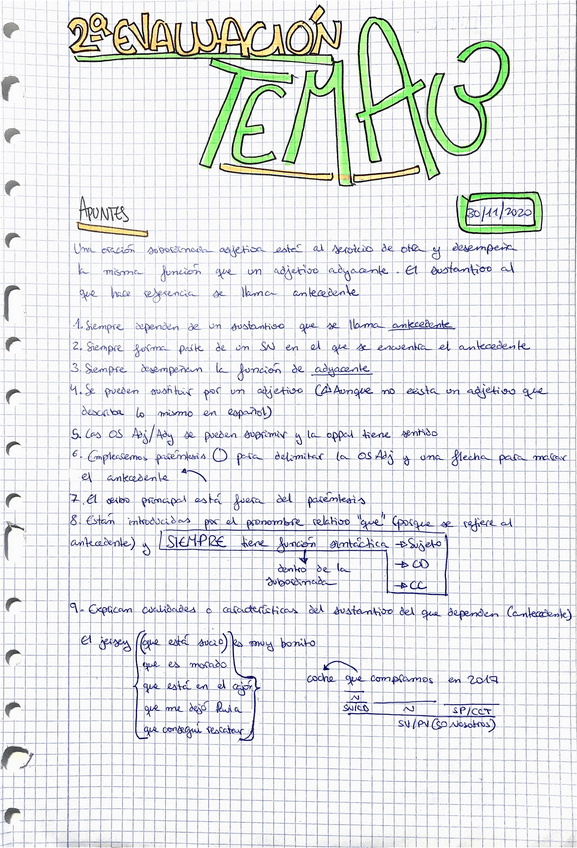 2ª EVALUACIÓN
TEMA 3
APUNTES
30/11/2020
Una oración subordinada adjetiva está al servicio de otra y desempeña
la misma función que un adjetivo adyacente. El sustantivo al
que hace referencia se llama antecedente
1. Siempre dependen de un sustantivo que se llama antecedente
2. Siempre forma parte de un SN en el que se encuentra el antecedente
3. Siempre desempeñan la función de adyacente
4. Se pueden sustituir por un adjetivo (⚠Aunque no exista un adjetivo que
describa lo mismo en español)
5. Las OS Adj/Ady se pueden suprimir y la oppal tiene sentido
6. Emplearemos paréntesis () para delimitar la OSAdj y una flecha para marcar
el antecedente
7. El verbo principal está fuera del paréntesis
8. Están introducidas por el pronombre relativo "que" (porque se refiere al
antecedente) y SIEMPRE tiene función sintáctica → Sujeto
→ CD
→ CC
dentro de la
subordinada
9. Explican cualidades o características del sustantivo del que dependen (antecedente)
El jersey (que está sucio) es muy bonito
que es morado
que está en el cajón
que me dejó
que conseguí rescatar
coche que compramos en 2017
N
SN/CD N SP/CCT
SV/PV (SO Nosotros)